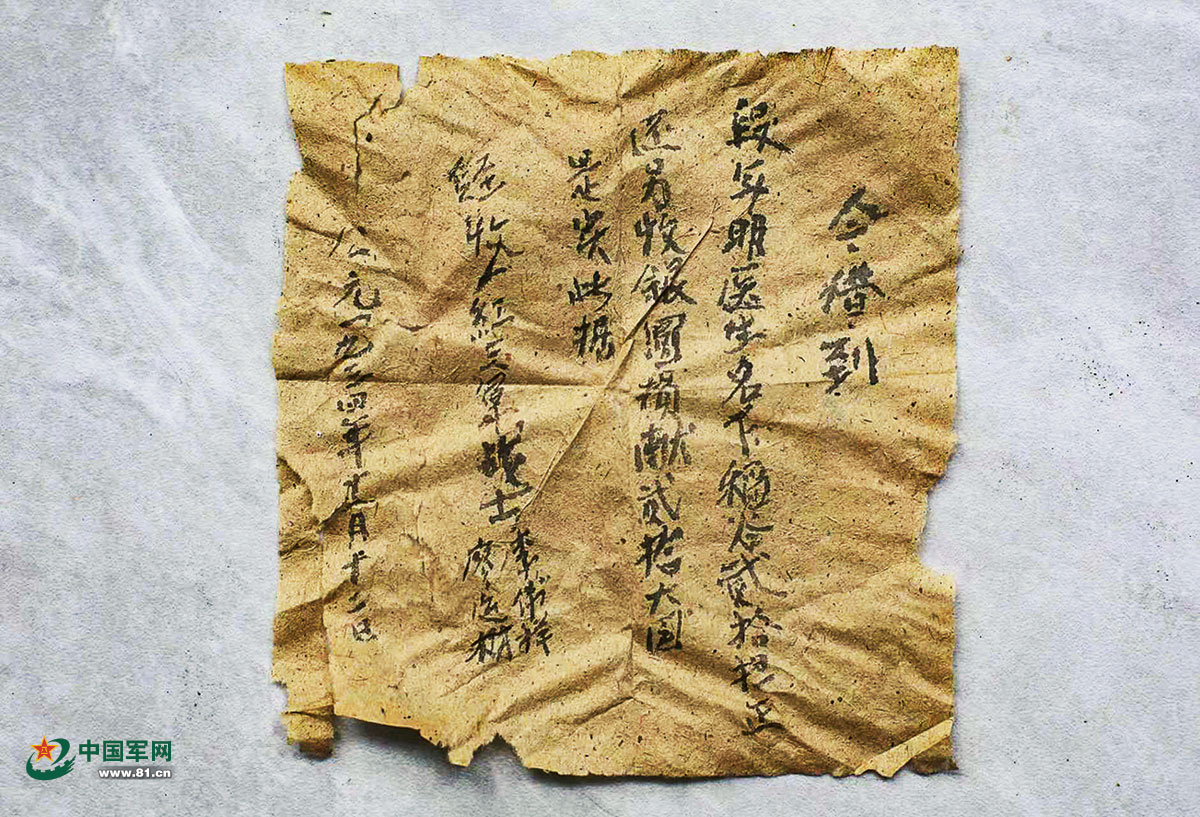 今借到
段年明医生名下稻谷贰拾担正
还另收银圆捐献贰拾大圆
是实此据
经收人红三军战士
李
廖
公元一九三四年月十二日
中国军网
www.81.cn